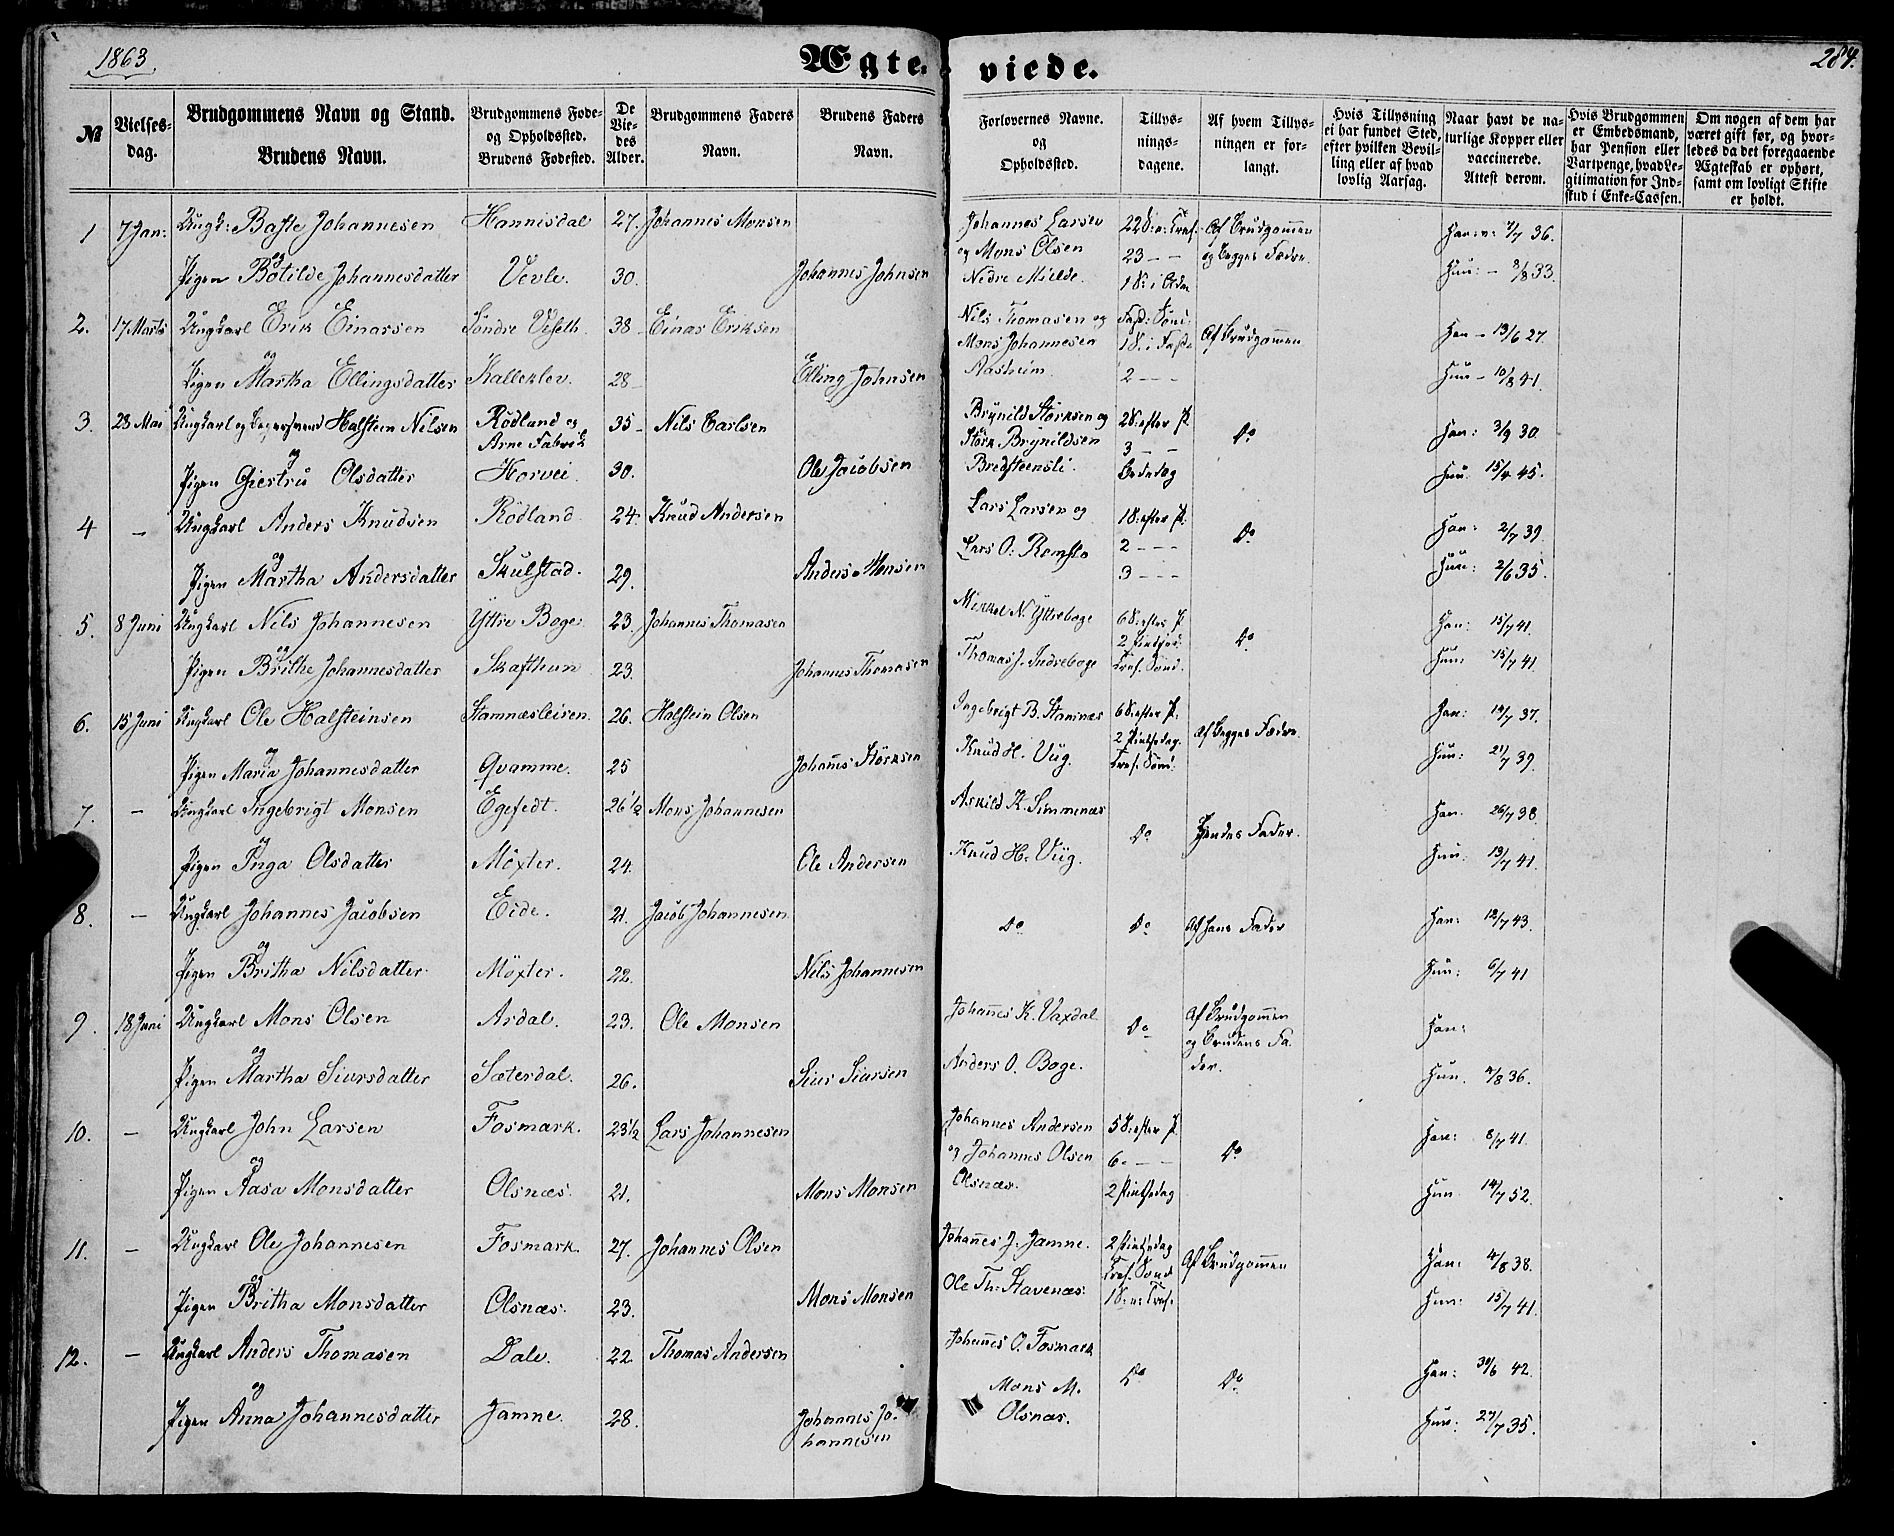 1863
Ægteviede.
284.
№
Vielses-
dag.
Brudgommens Navn og Stand.
Brudens Navn.
Brudgommens Føde-
og Opholdssted.
Brudens Fødested.
De
Vie-
des
Alder.
Brudgommens Faders
Navn.
Brudens Faders
Navn.
Forlovernes Navne.
og
Opholdssted.
Tillys-
nings-
dagene.
Af hvem Tillys-
ningen er for-
langt.
Hvis Tillysning
ei har fundet Sted,
efter hvilken Bevil-
ling eller af hvad
lovlig Aarsag.
Naar havt de na-
turlige Kopper eller
vaccinerede.
Attest derom.
Hvis Brudgommen
er Embedsmand,
har Pension eller
Vartpenge, hvad Le-
gitimation for Ind-
skud i Enke-Cassen.
Om nogen af dem har
været gift før, og hvor-
ledes da det foregaaende
Ægteskab er ophørt,
samt om lovligt Skifte
er holdt.
1 7 Jan: Ungk: Johannesen Hannisdal 27. Johannes Monsen Johannes Larsen 22 S: e: Tref. Af Brudgommen Han: v: 7/7 36.
og og Mons Olsen 23 – – og begges Fædre.
Pigen Botilde Johannesdatter Vevle. 30. Johannes Johnsen Nedre Mielde. 1 S: i Adv. Hun: – 8/8 33.
2. 17 Marts Ungkarl Erik Einarsen Söndre Viseth 38 Einar Eriksen Nils Thomasen og Fast: Sönd: Af Brudgommen Han – 13/6 27.
og Mons Johannesen 1 S: i Faste
Pigen Martha Ellingsdatter Kalleklev. 28 Elling Johnsen Aasheim. 2 – – Hun – 10/8 41.
3. 23 Mai Ungkarl og Halstein Nilsen Rödland og 35 Nils Carlsen Brynild Störksen og 2 S: efter P. Do Han: 3/9 30.
Arne Fabrik Störk Brynildsen 3 – –
og
Pigen Giertru Olsdatter Horvei 30. Ole Jacobsen Bredsteensli. Bededag Hun: 15/4 45.
4 – Ungkarl Anders Knudsen Rödland 24. Knud Andersen Lars Larsen og 1 S: efter P. Do Han: 2/7 39.
og Lars O. Romslo 2 – – –
Pigen Martha Andersdatter Skulstad. 29. Anders Monsen 3 – – – Hun: 2/6 35.
5. 8 Juni Ungkarl Nils Johannesen Yttre Boge 23. Johannes Thomasen Mikkel N. Yttreboge 6 S: efter P Do Han: 15/7 41.
og 2 Pintsed:
Pigen Brithe Johannesdatter Skaftheun 23. Johannes Thomasen Thomas J. Indreboge Tref. Sönd. Hun: 15/7 41.
6. 15 Juni Ungkarl Ole Halsteinsen Stamnæsleiren. 26. Halstein Olsen Ingebrigt B. Stamnæs 6 S: efter P. Af begges Fædre. Han: 14/7 37.
og 2 Pintsedag.
Pigen Maria Johannesdatter Qvamme. 25 Johanes Störksen Knud H. Vüg. Tref. Sönd: Hun: 21/7 39.
7. – Ungkarl Ingebrigt Monsen Egefedt. 26 1/2 Mons Johannesen Askild K. Simmenæs Do Hendes Fader. Han. 26/7 38.
og
Pigen Inga Olsdatter Möxter. 24. Ole Andersen Knud H. Vüg. Hun. 13/7 41.
8. – Ungkarl Johannes Jacobsen Eide. 21. Jacob Johannesen Do Do Af hans Fader Han: 12/7 43.
og
Pigen Britha Nilsdatter. Möxter. 22. Nils Johannesen Hun: 6/7 41
9. 18 Juni Ungkarl Mons Olsen Ardal. 23. Ole Monsen Johanes K. Vaxdal Do Af Brudgommen Han:
og og Brudens Fa-
Pigen Martha Siursdatter Sæterdal. 26. Siur Siursen Anders O. Boge. der. Hun. 4/8 36.
10. – Ungkarl John Larsen Fosmark. 23 1/2 Lars Johannesen Johannes Andersen 5 S: efter P. Do Han: 8/7 41.
og og Johannes Olsen 6. – –
Pigen Aasa Monsdatter Olsnæs. 21. Mons Monsen Olsnæs. 2 Pintsedag Hun. 14/7 52.
11. – Ungkarl Ole Johannesen Fosmark. 27. Johannes Olsen Johanes J. Jamne. 2 Pintsedag Af Brudgommen Han: 4/8 38.
og Tref. Sönd
Pigen Britha Monsdatter Olsnæs. 23. Mons Monsen Ole Th: Stavenæs. 1 S: e: Tref: Hun: 15/7 41.
12. – Ungkarl Anders Thomasen Dale. 22 Thomas Andersen Johanes O. Fosmark Do Do Han: 30/6 42.
og Mons M.
Pigen Anna Johannesdatter Jamne. 28. Johannes Jo- Olsnæs. Hun. 27/7 35.
hannesen